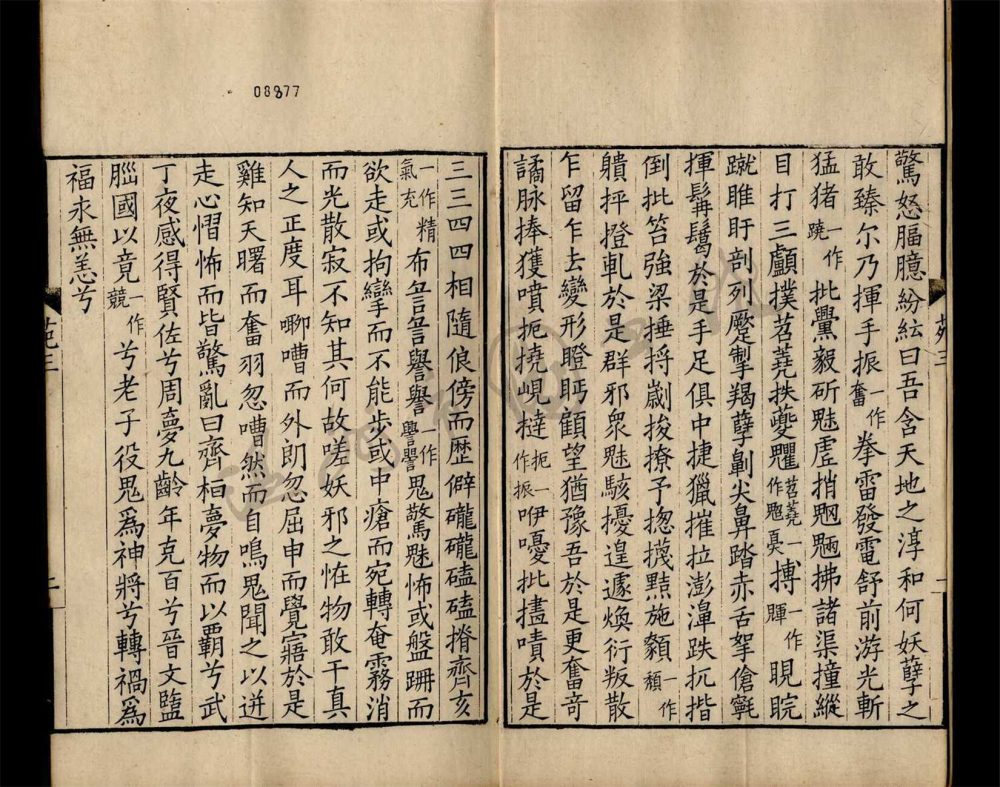 驚怒腷臆紛紜曰吾含天地之淳和何妖孽之
敢臻尔乃揮手振一作奮拳雷發電舒前游光斬
猛猪一作蹺批𤢖毅斫魅虛捎魍魎拂諸渠撞縱
目打三顱撲苕蕘抶夔魖苕蕘一作䰡㚟搏一作睴睍睆
蹴睢盱剖列蹷掣羯孽劓尖鼻踏赤舌挐傖𩬞
揮髯鬄於是手足俱中捷獵摧拉澎濞跌抗揩
倒批笞強梁捶捋劌捘撩予揔𢷾㸃施頼一作頹
躀抨撜軋於是群邪衆魅駭擾遑遽煥衍叛散
乍留乍去變形瞪眄顧望猶豫吾於是更奮奇
譎脉捧獲噴扼撓峴撻扼一作振咿嚘批㩍嘖於是
三三四四相隨俍傍而歴僻礲礲磕磕揥齊亥
一作精氣充布訇訇䜓䜓一作礐礐鬼驚魅怖或盤跚而
欲走或拘攣而不能步或中瘡而宛轉奄霧消
而光散寂不知其何故嗟妖邪之恠物敢干真
人之正度耳聊嘈而外朗忽屈申而覺寤於是
雞知天曙而奮羽忽嘈然而自鳴鬼聞之以迸
走心慴怖而皆驚亂曰齊桓夢物而以覇兮武
丁夜感得賢佐兮周夢九齡年克百兮晉文盬
腦國以竟一作競兮老子役鬼爲神將兮轉禍爲
福永無恙兮
苑三
一
苑三
二
08877